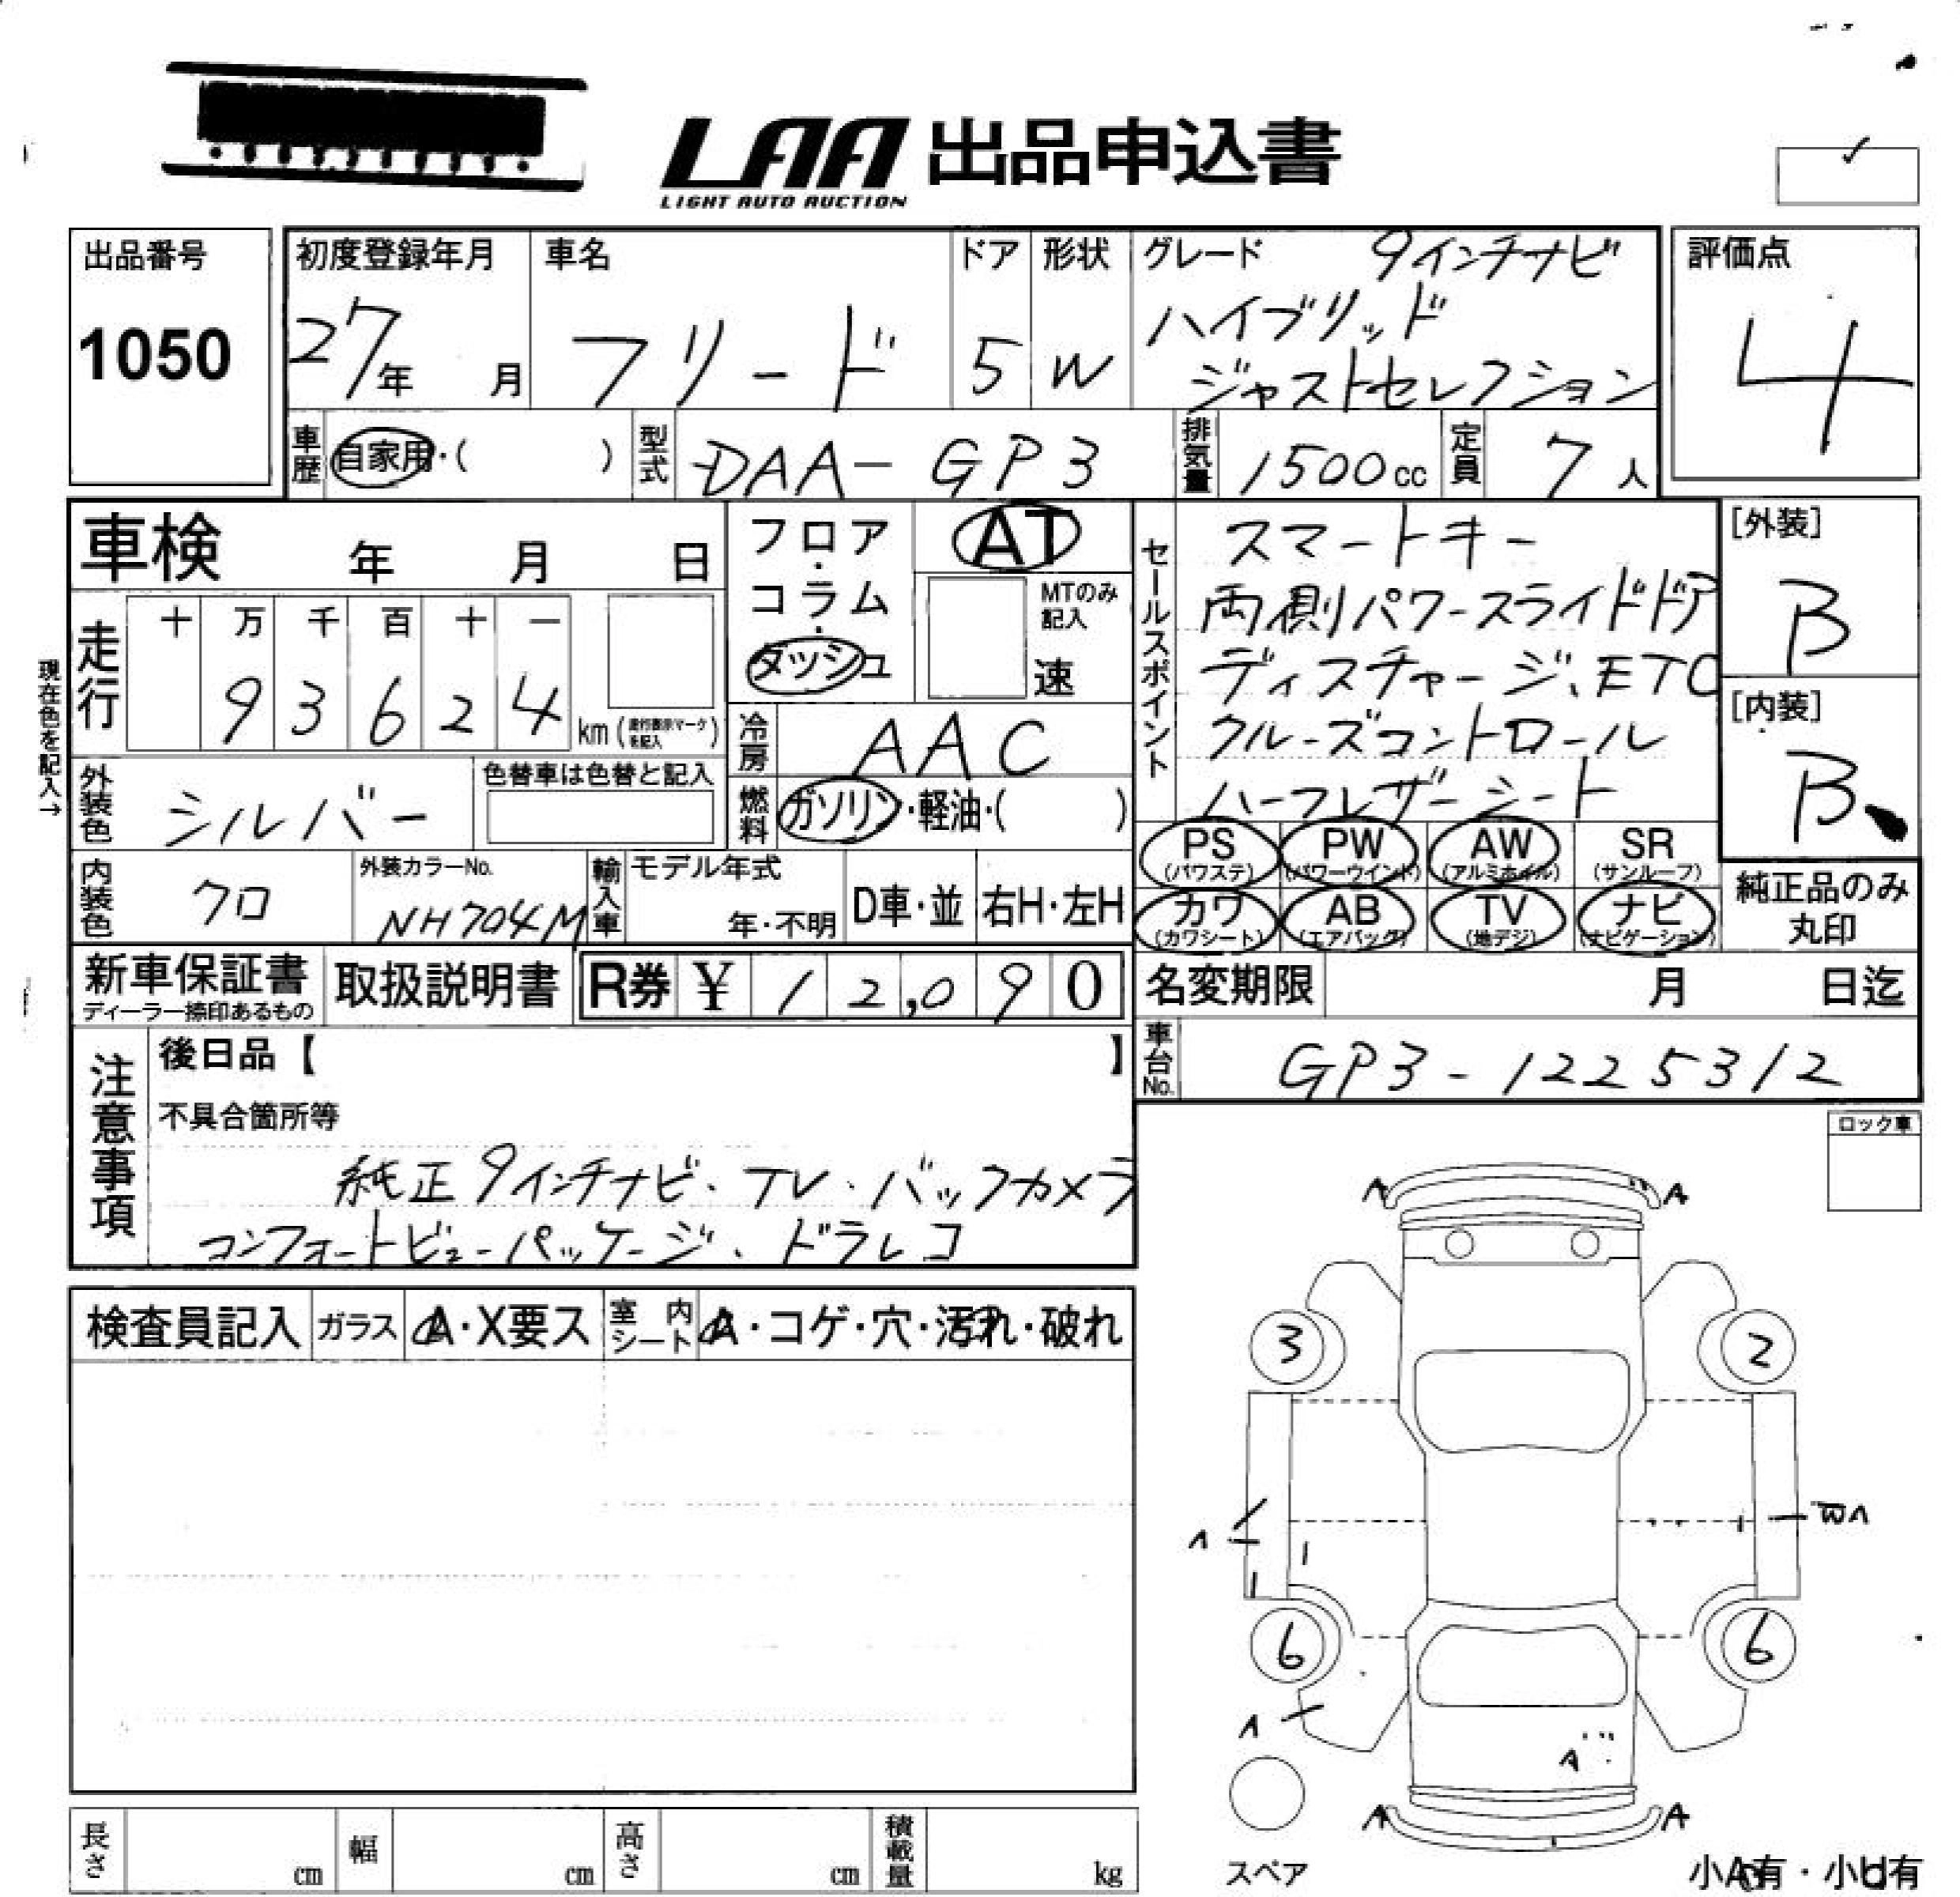 LAA 出品申込書
LIGHT AUTO AUCTION
出品番号
1050
初度登録年月
27年 月
車名
フリード
ドア
5
形状
W
グレード 9インチナビ
ハイブリッド
ジャストセレクション
評価点
4
車歴 自家用・( )
型式 DAA-GP3
排気量 1500cc
定員 7人
車検 年 月 日
フロア・コラム・ダッシュ
AT
MTのみ記入
速
現在色を記入→
走行 十 万 千 百 十 一
9 3 6 2 4 km (走行表示マークを記入)
冷房 AAC
燃料 ガソリン・軽油・( )
外装色 シルバー
色替車は色替と記入
内装色 クロ
外装カラーNo.
NH704M
輸入車 モデル年式
年・不明
D車・並
右H・左H
セールスポイント
スマートキー
両側パワースライドドア
ディスチャージ、ETC
クルーズコントロール
ハーフレザーシート
[外装]
B
[内装]
B
PS (パワステ)
PW (パワーウインド)
AW (アルミホイル)
SR (サンルーフ)
カワ (カワシート)
AB (エアバック)
TV (地デジ)
ナビ (ナビゲーション)
純正品のみ
丸印
新車保証書
ディーラー捺印あるもの
取扱説明書
R券 ¥ 12,090
名変期限 月 日迄
車台No. GP3-1225312
注意事項
後日品【 】
不具合箇所等
純正9インチナビ・TV・バックカメラ
コンフォートビューパッケージ、ドラレコ
検査員記入
ガラス A・X要ス
室内シート A・コゲ・穴・汚れ・破れ
ロック車
A A
3 2
A
6 6
A
A
A A
スペア
小A有・小U有
長さ cm
幅 cm
高さ cm
積載量 kg